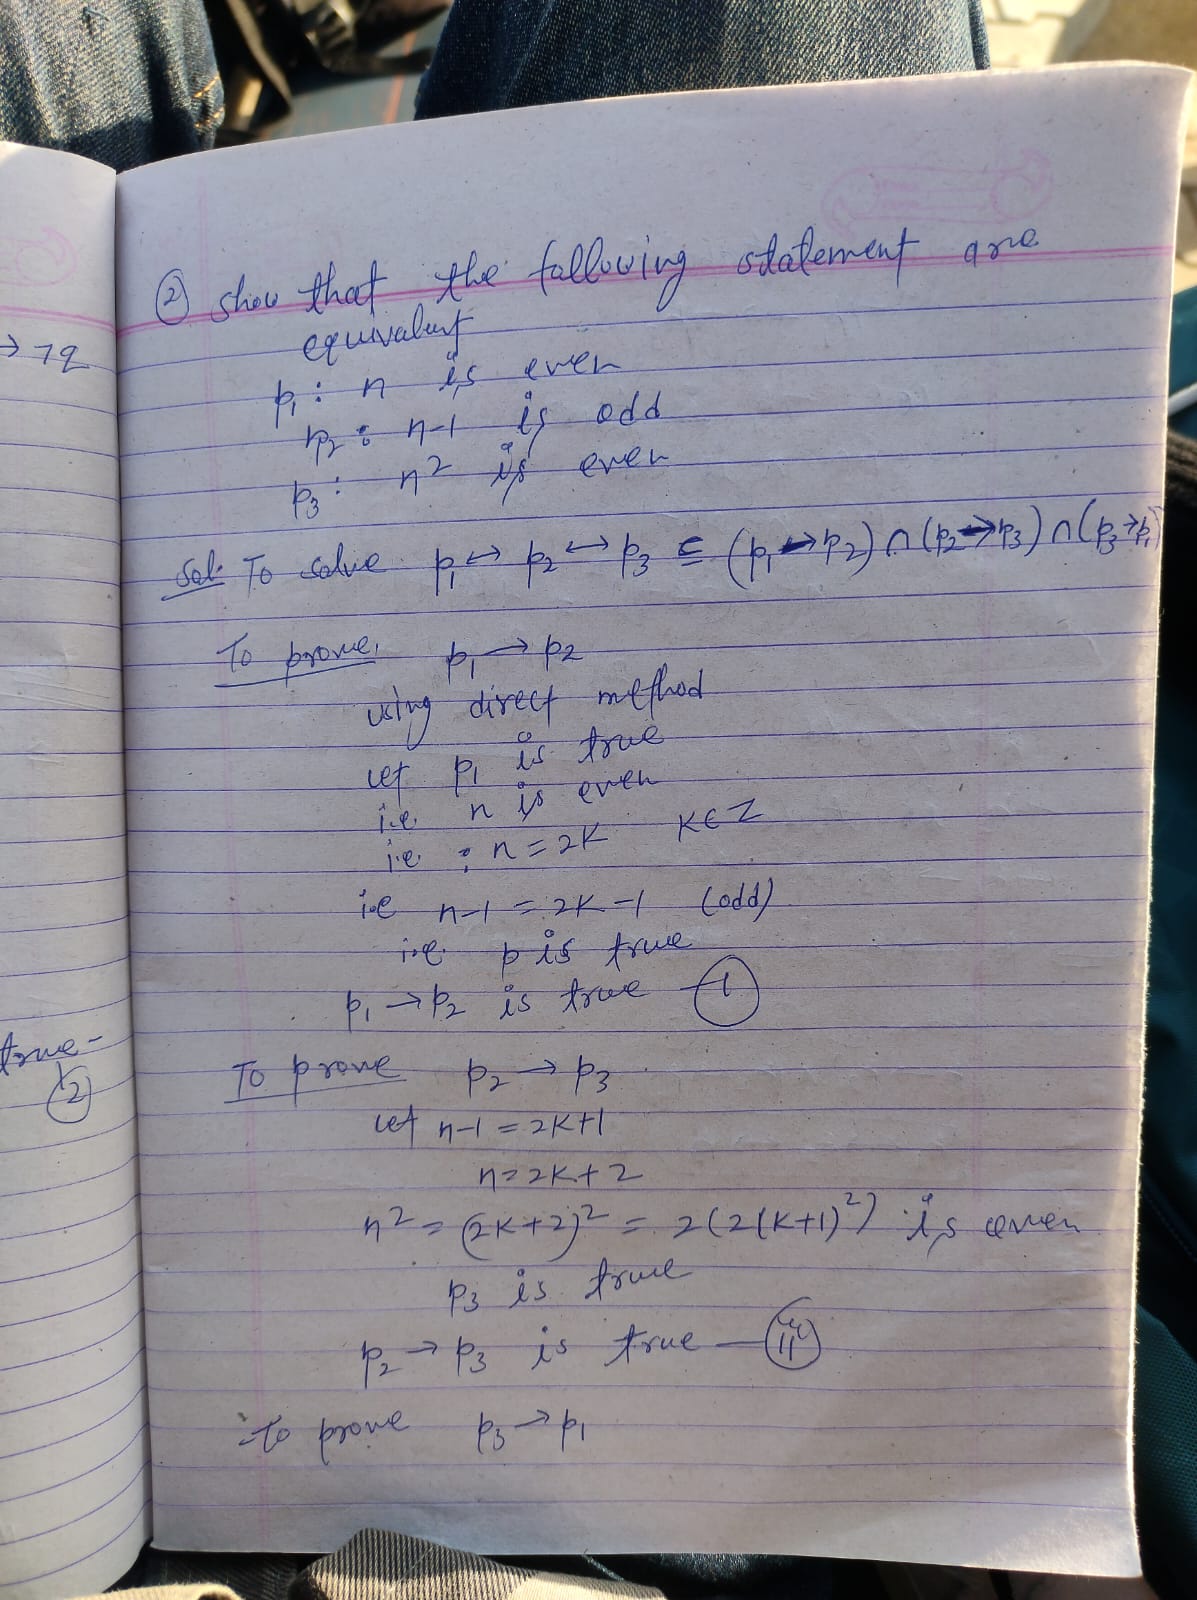 ② show that the following statement are
equivalent
→ 72
p₁ : n is even
p₂ : n-1 is odd
p₃ : n² is even
Sol: To solve p₁ ↔ p₂ ↔ p₃ ≤ (p₁ → p₂) ∩ (p₂ → p₃) ∩ (p₃ → p₁)
To prove, p₁ → p₂
using direct method
let p₁ is true
i.e. n is even
i.e. : n = 2K K∈Z
i.e n-1 = 2K-1 (odd)
i.e. p is true
p₁ → p₂ is true — ①
true -
②
To prove p₂ → p₃
let n-1 = 2K+1
n = 2K+2
n² = (2K+2)² = 2(2(K+1)²) is even
p₃ is true
p₂ → p₃ is true — ⅱ
To prove p₃ → p₁